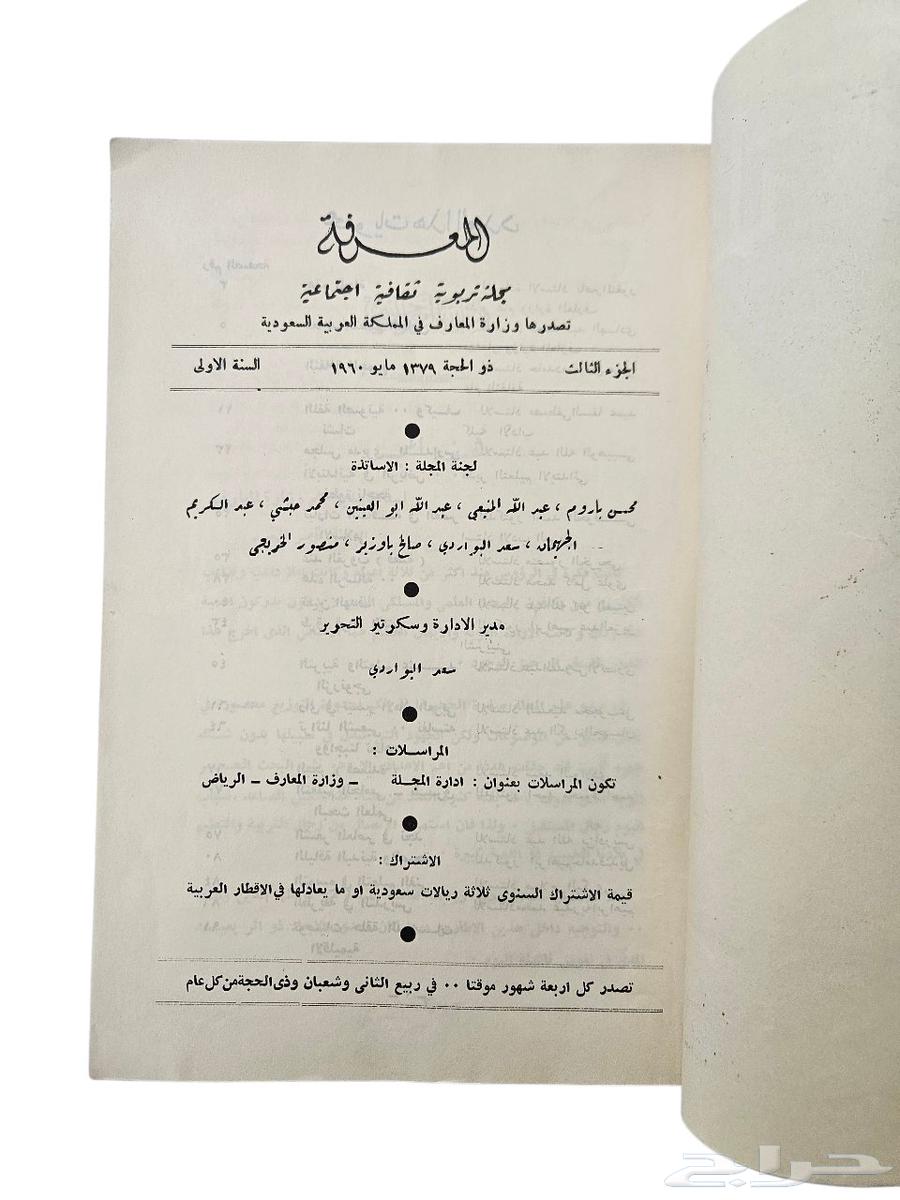 المعرفة
مجلة تربوية ثقافية اجتماعية
تصدرها وزارة المعارف في المملكة العربية السعودية
الجزء الثالث ذو الحجة ١٣٧٩ مايو ١٩٦٠ السنة الاولى
لجنة المجلة : الاساتذة
محسن باروم ، عبد الله المنيعي ، عبد الله ابو العينين ، محمد حبشي ، عبد الكريم
الجهيمان ، سعد البواردي ، صالح باوزير ، منصور الخريجي
مدير الادارة وسكرتير التحرير
سعد البواردي
المراسلات :
تكون المراسلات بعنوان : ادارة المجلة – وزارة المعارف – الرياض
الاشتراك :
قيمة الاشتراك السنوى ثلاثة ريالات سعودية او ما يعادلها في الاقطار العربية
تصدر كل اربعة شهور موقتا ٠٠ في ربيع الثانى وشعبان وذى الحجة من كل عام
حراج